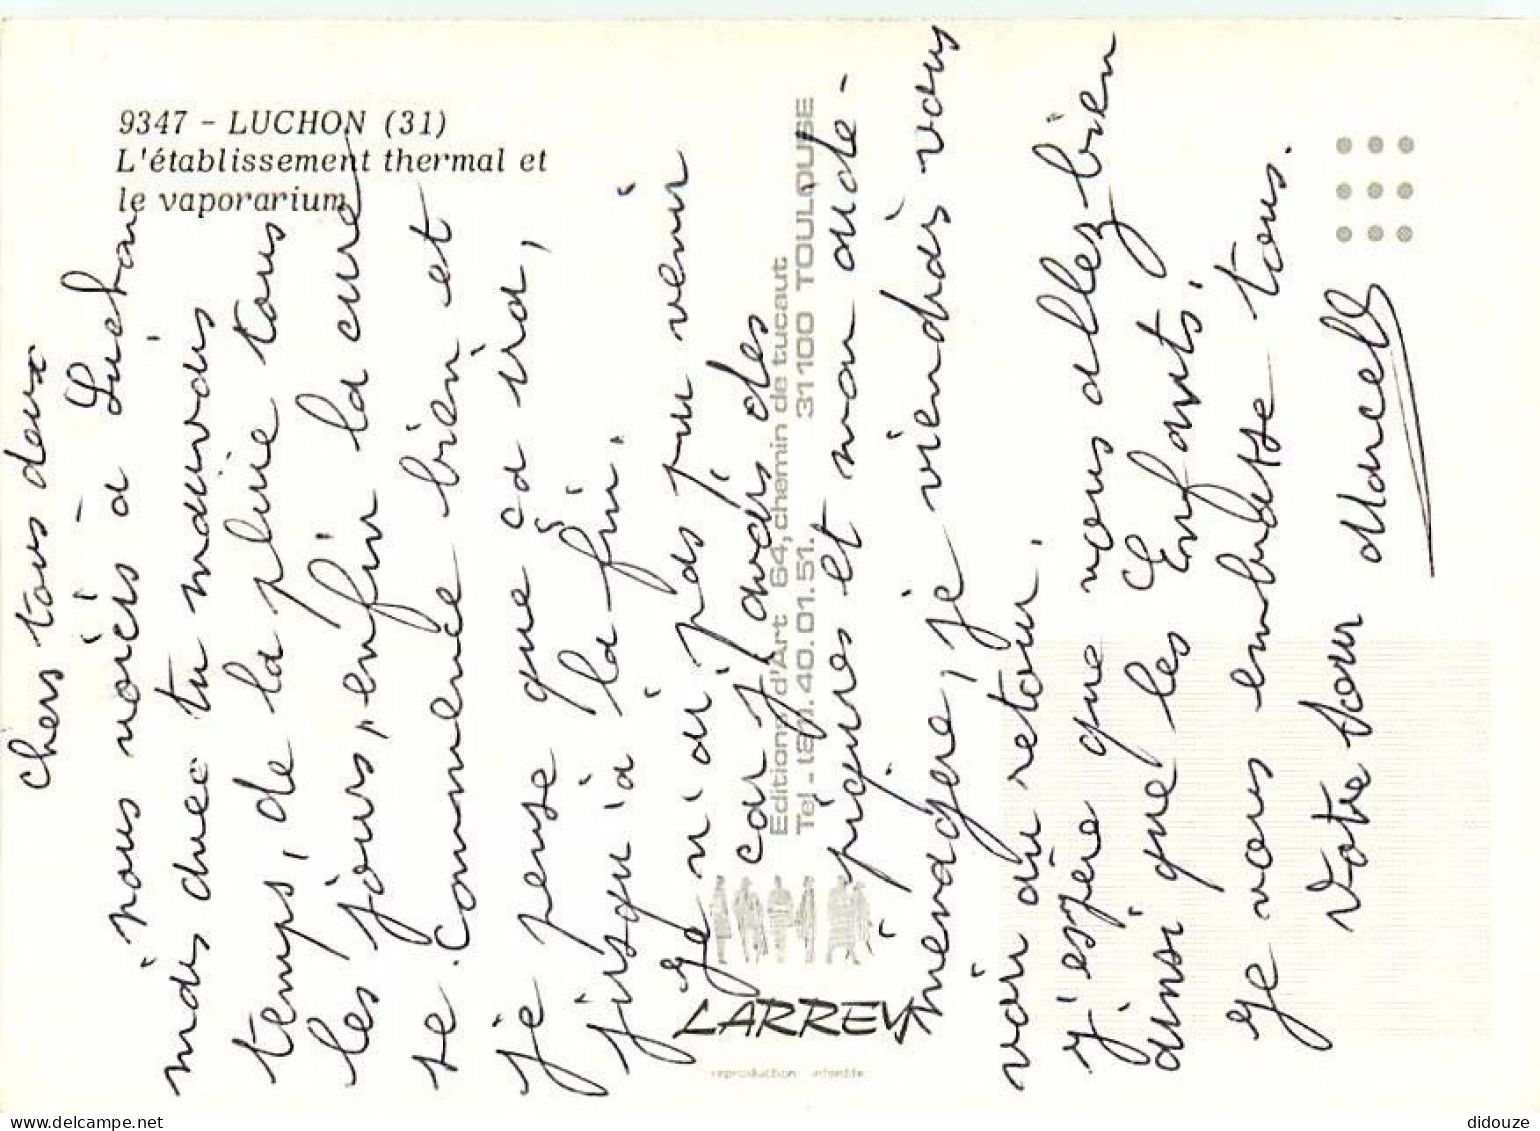 9347 - LUCHON (31)
L'établissement thermal et
le vaporarium
Chers tous deux
nous voicis à Luchon
mais avec tu mauvais
temps, de la pluie tous
les jours, enfin la cure
se commence bien et
je pense que ça ira,
jusqu'à la fin.
Je n'ai pas pu venir
car j'avais des
piqures et mon aide-
menagère, je viendrais vous
voir au retour.
J'espère que vous allez-bien
ainsi que les Enfants.
Je vous embrasse tous.
Votre sœur Marcelle
Editions d'Art 64, chemin de tucaut
Tel - 40.01.51. 31100 TOULOUSE
LARREY
reproduction interdite
delcampe.net
didouze